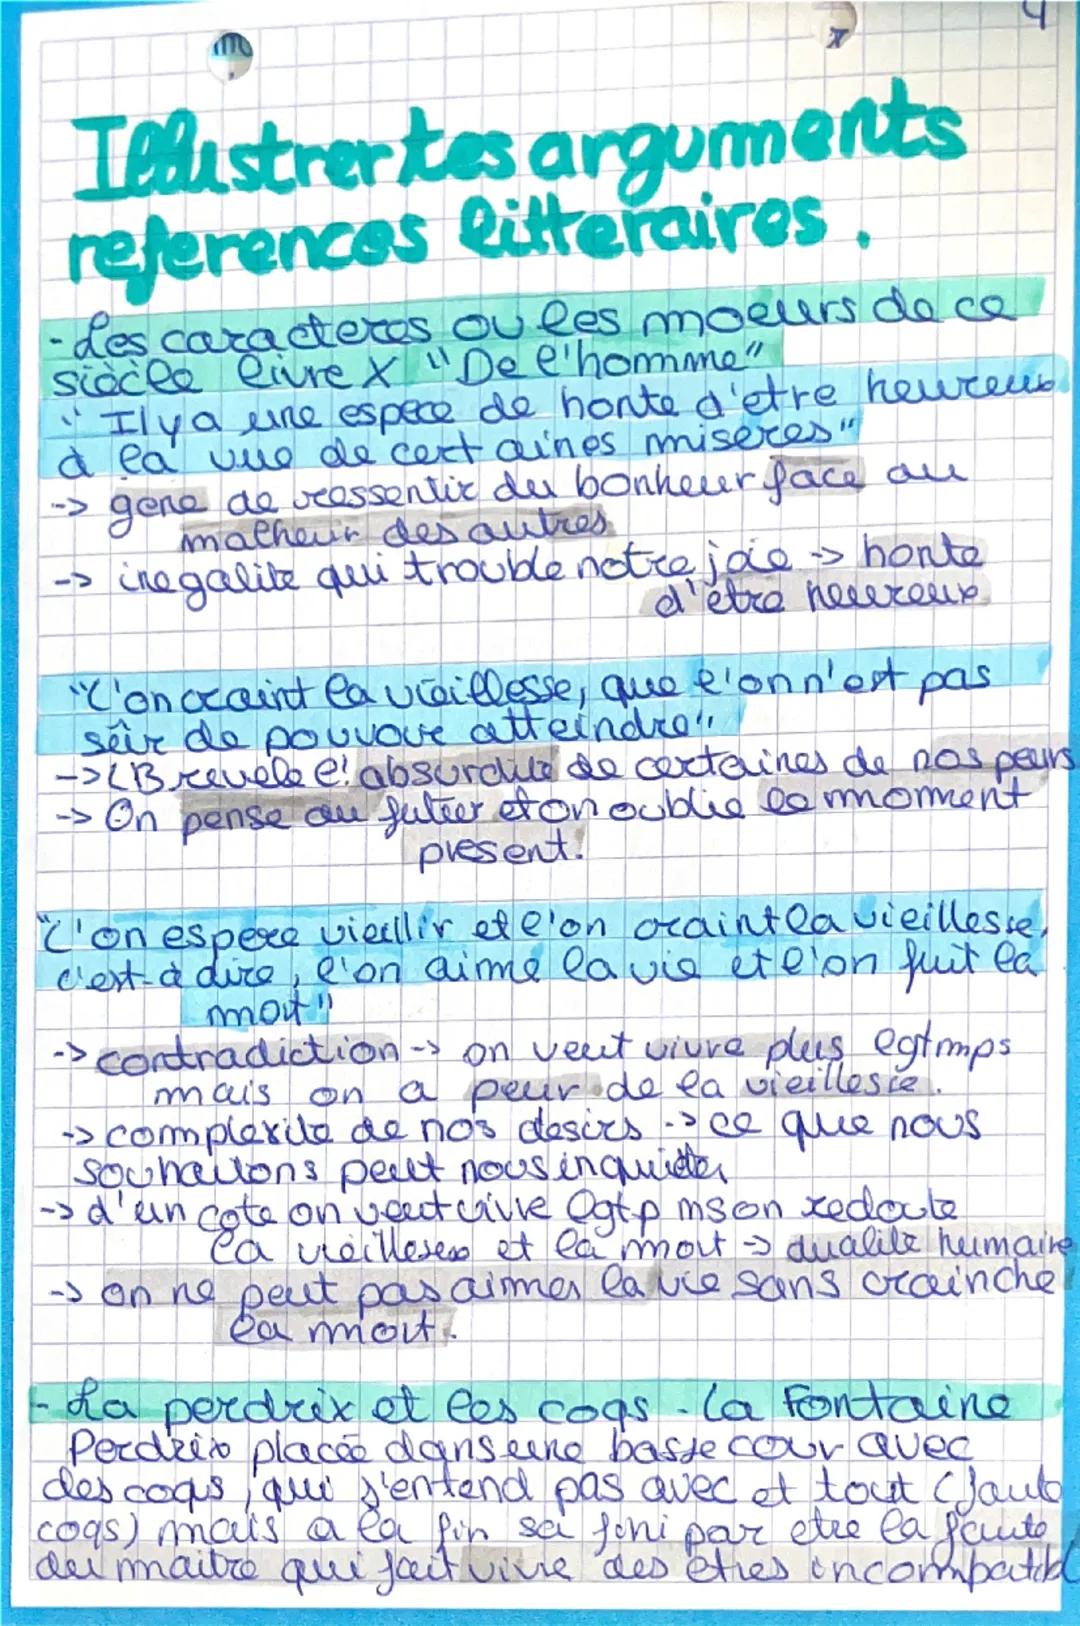 4
Illustrer tes arguments
references litteraires.
- Les caracteres ou les moeurs de ce
siècle livre X "De l'homme"
"Il y a une espece de honte d'etre heureux
à la vue de certaines miseres"
-> gene de ressentir du bonheur face au
malheur des autres
-> inegalite qui trouble notre joie -> honte
d'etre heureux
"L'on craint la vieillesse, que l'on n'est pas
sûr de pouvoir atteindre"
-> LB revele l'absurdite de certaines de nos peurs
-> On pense au futur et on oublie le moment
present.
"L'on espere vieillir et l'on craint la vieillesse,
c'est-à dire, l'on aime la vie et l'on fuit la
mort"
-> contradiction -> on veut vivre plus lgtmps
mais on a peur de la vieillesse.
-> complexite de nos desirs -> ce que nous
souhaitons peut nous inquieter
-> d'un cote on veut vivre lgtp ms on redoute
la vieillesse et la mort -> dualite humaine
-> on ne peut pas aimer la vie sans craindre
la mort.
- La perdrix et les coqs - La Fontaine
Perdrix placée dans une basse cour avec
des coqs, qui s'entend pas avec et tout (faute
coqs) mais a la fin sa fini par etre la faute
du maitre qui fait vivre des êtres incompatibl